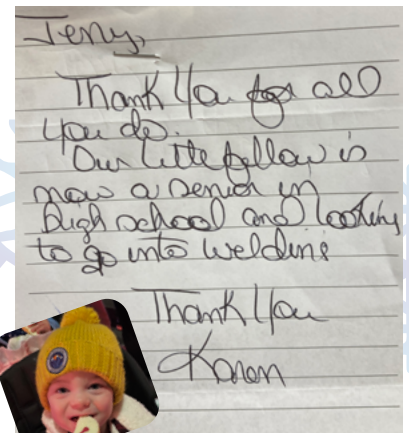 Jerry,
Thank You for all
you do.
Our little fellow is
now a senior in
high school and looking
to go into welding
Thank You
Karen